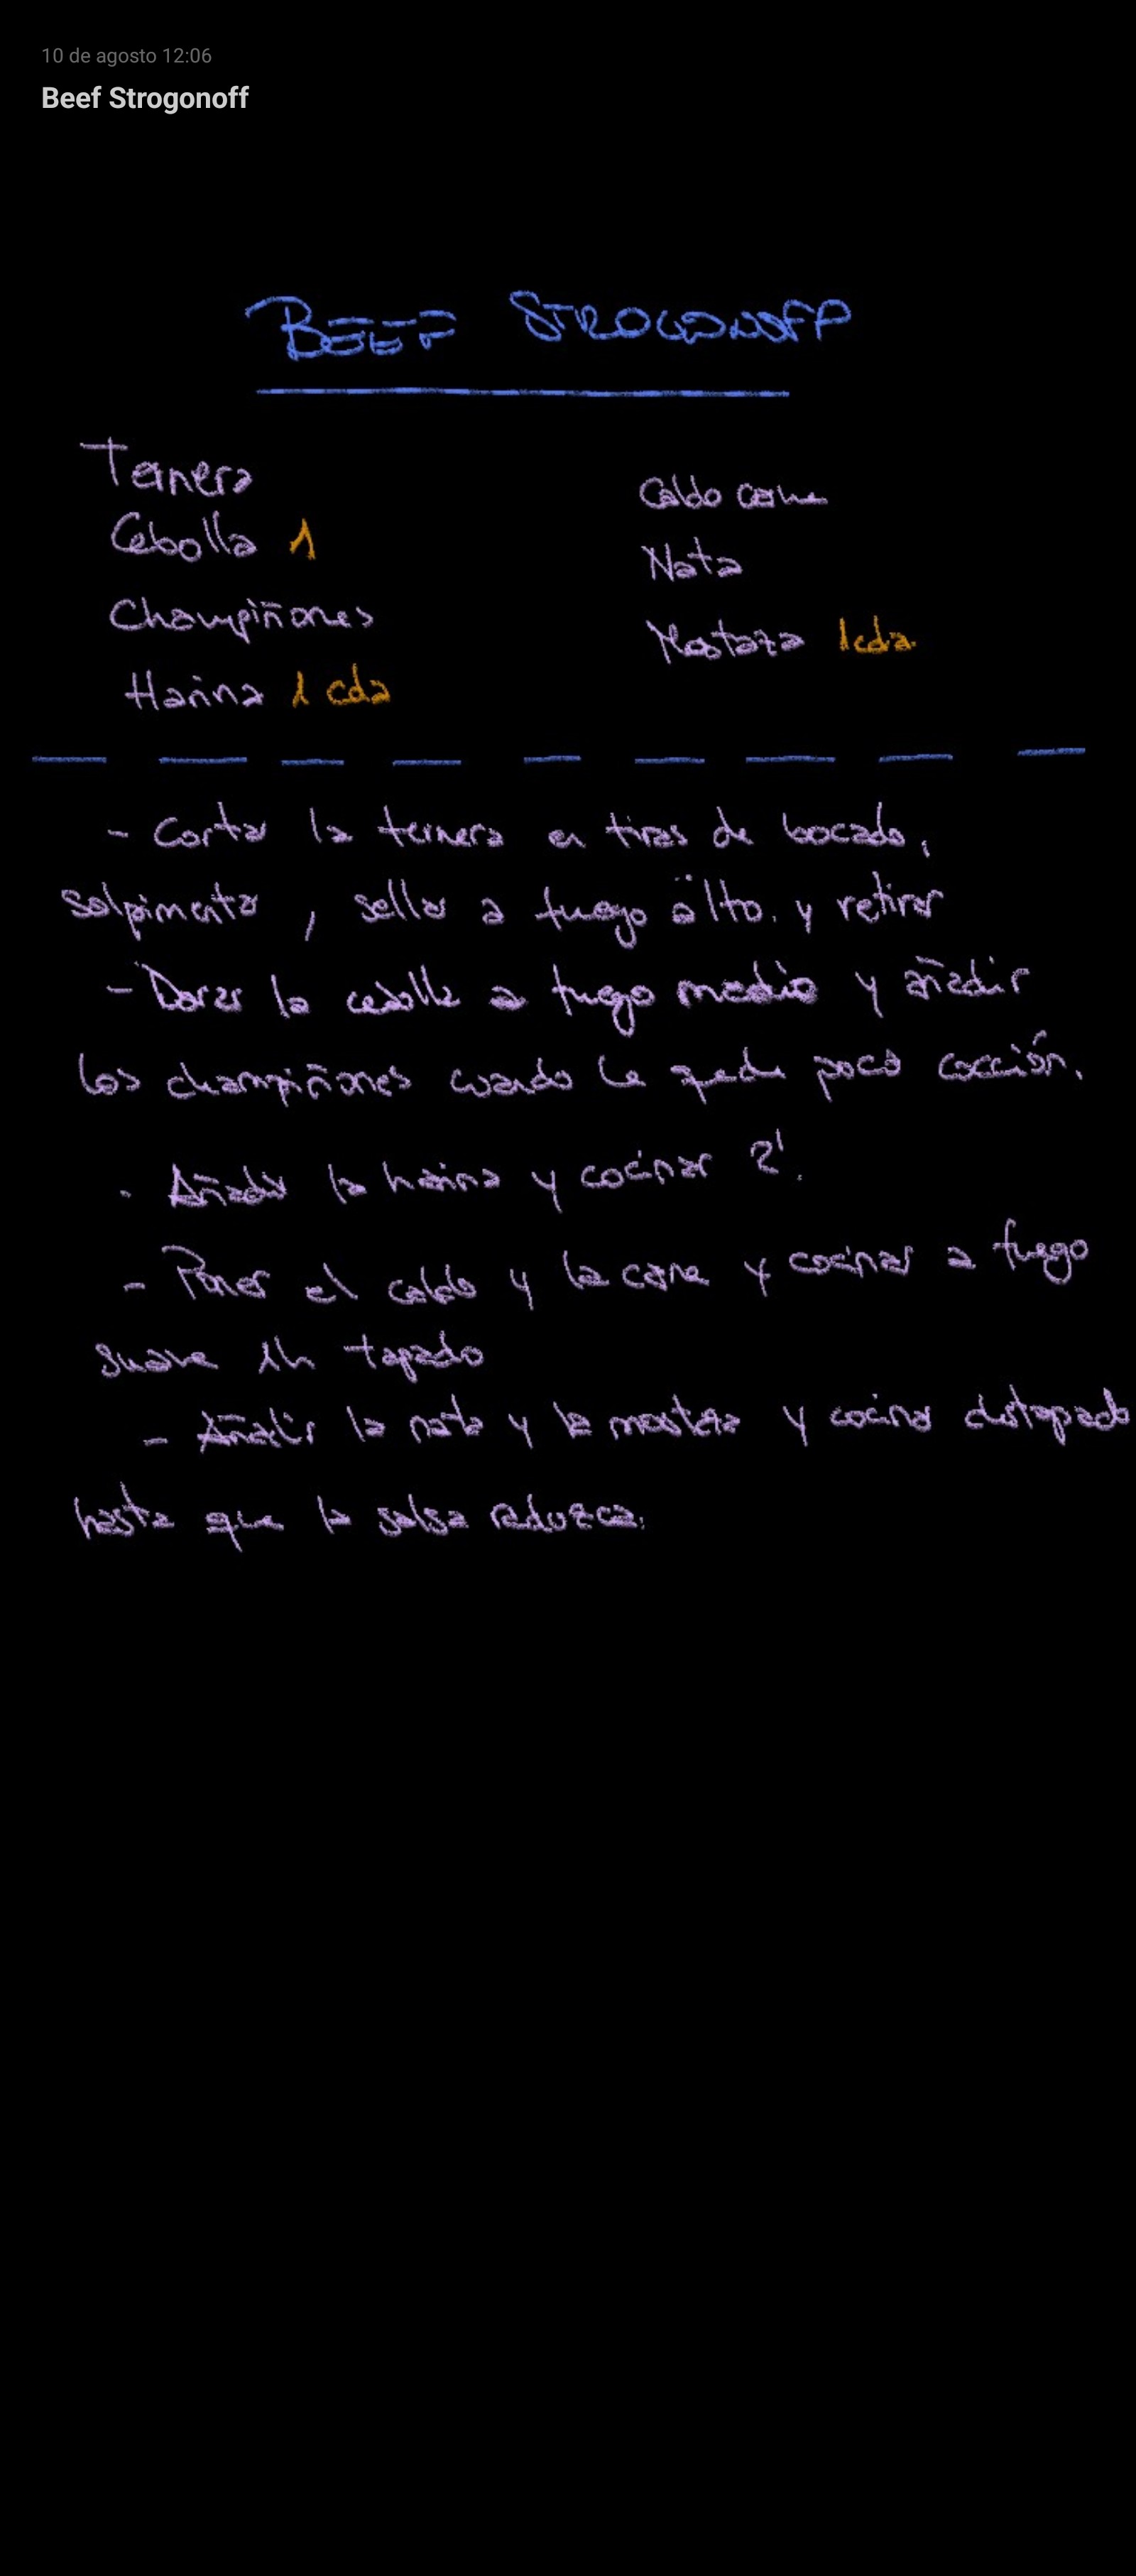 10 de agosto 12:06
Beef Strogonoff
BEEF STROGONOFF
Ternera
Cebolla 1
Champiñones
Harina 1 cda
Caldo carne
Nata
Mostaza 1cda.
- Cortar la ternera en tiras de bocado,
salpimentar, sellar a fuego alto. y retirar
- Dorar la cebolla a fuego medio y añadir
los champiñones cuando le quede poca cocción.
- Añadir la harina y cocinar 2'.
- Poner el caldo y la carne y cocinar a fuego
suave 1h tapado
- Añadir la nata y la mostaza y cocinar destapado
hasta que la salsa reduzca.